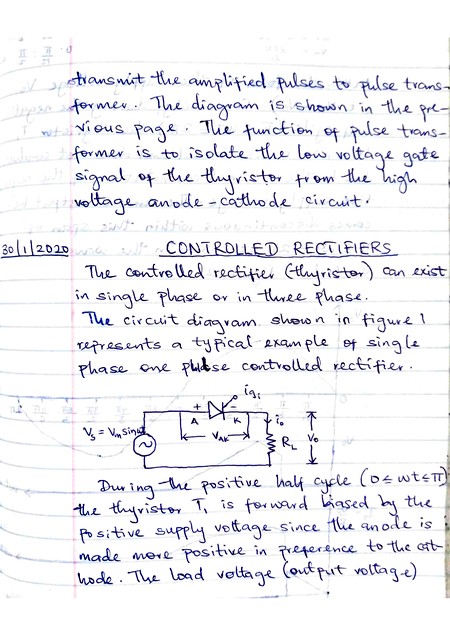 transmit the amplified pulses to pulse trans-
former. The diagram is shown in the pre-
vious page. The function of pulse trans-
former is to isolate the low voltage gate
signal of the thyristor from the high
voltage anode-cathode circuit.
30/1/2020 CONTROLLED RECTIFIERS
The controlled rectifier (thyristor) can exist
in single phase or in three phase.
The circuit diagram shown in figure 1
represents a typical example of single
phase one pulse controlled rectifier.
ig₁
+ -
A K i₀
Vs = Vm sinωt VAK RL V₀
During the positive half cycle (0 ≤ ωt ≤ π)
the thyristor T₁ is forward biased by the
positive supply voltage since the anode is
made more positive in preference to the cat-
hode. The load voltage (output voltage)